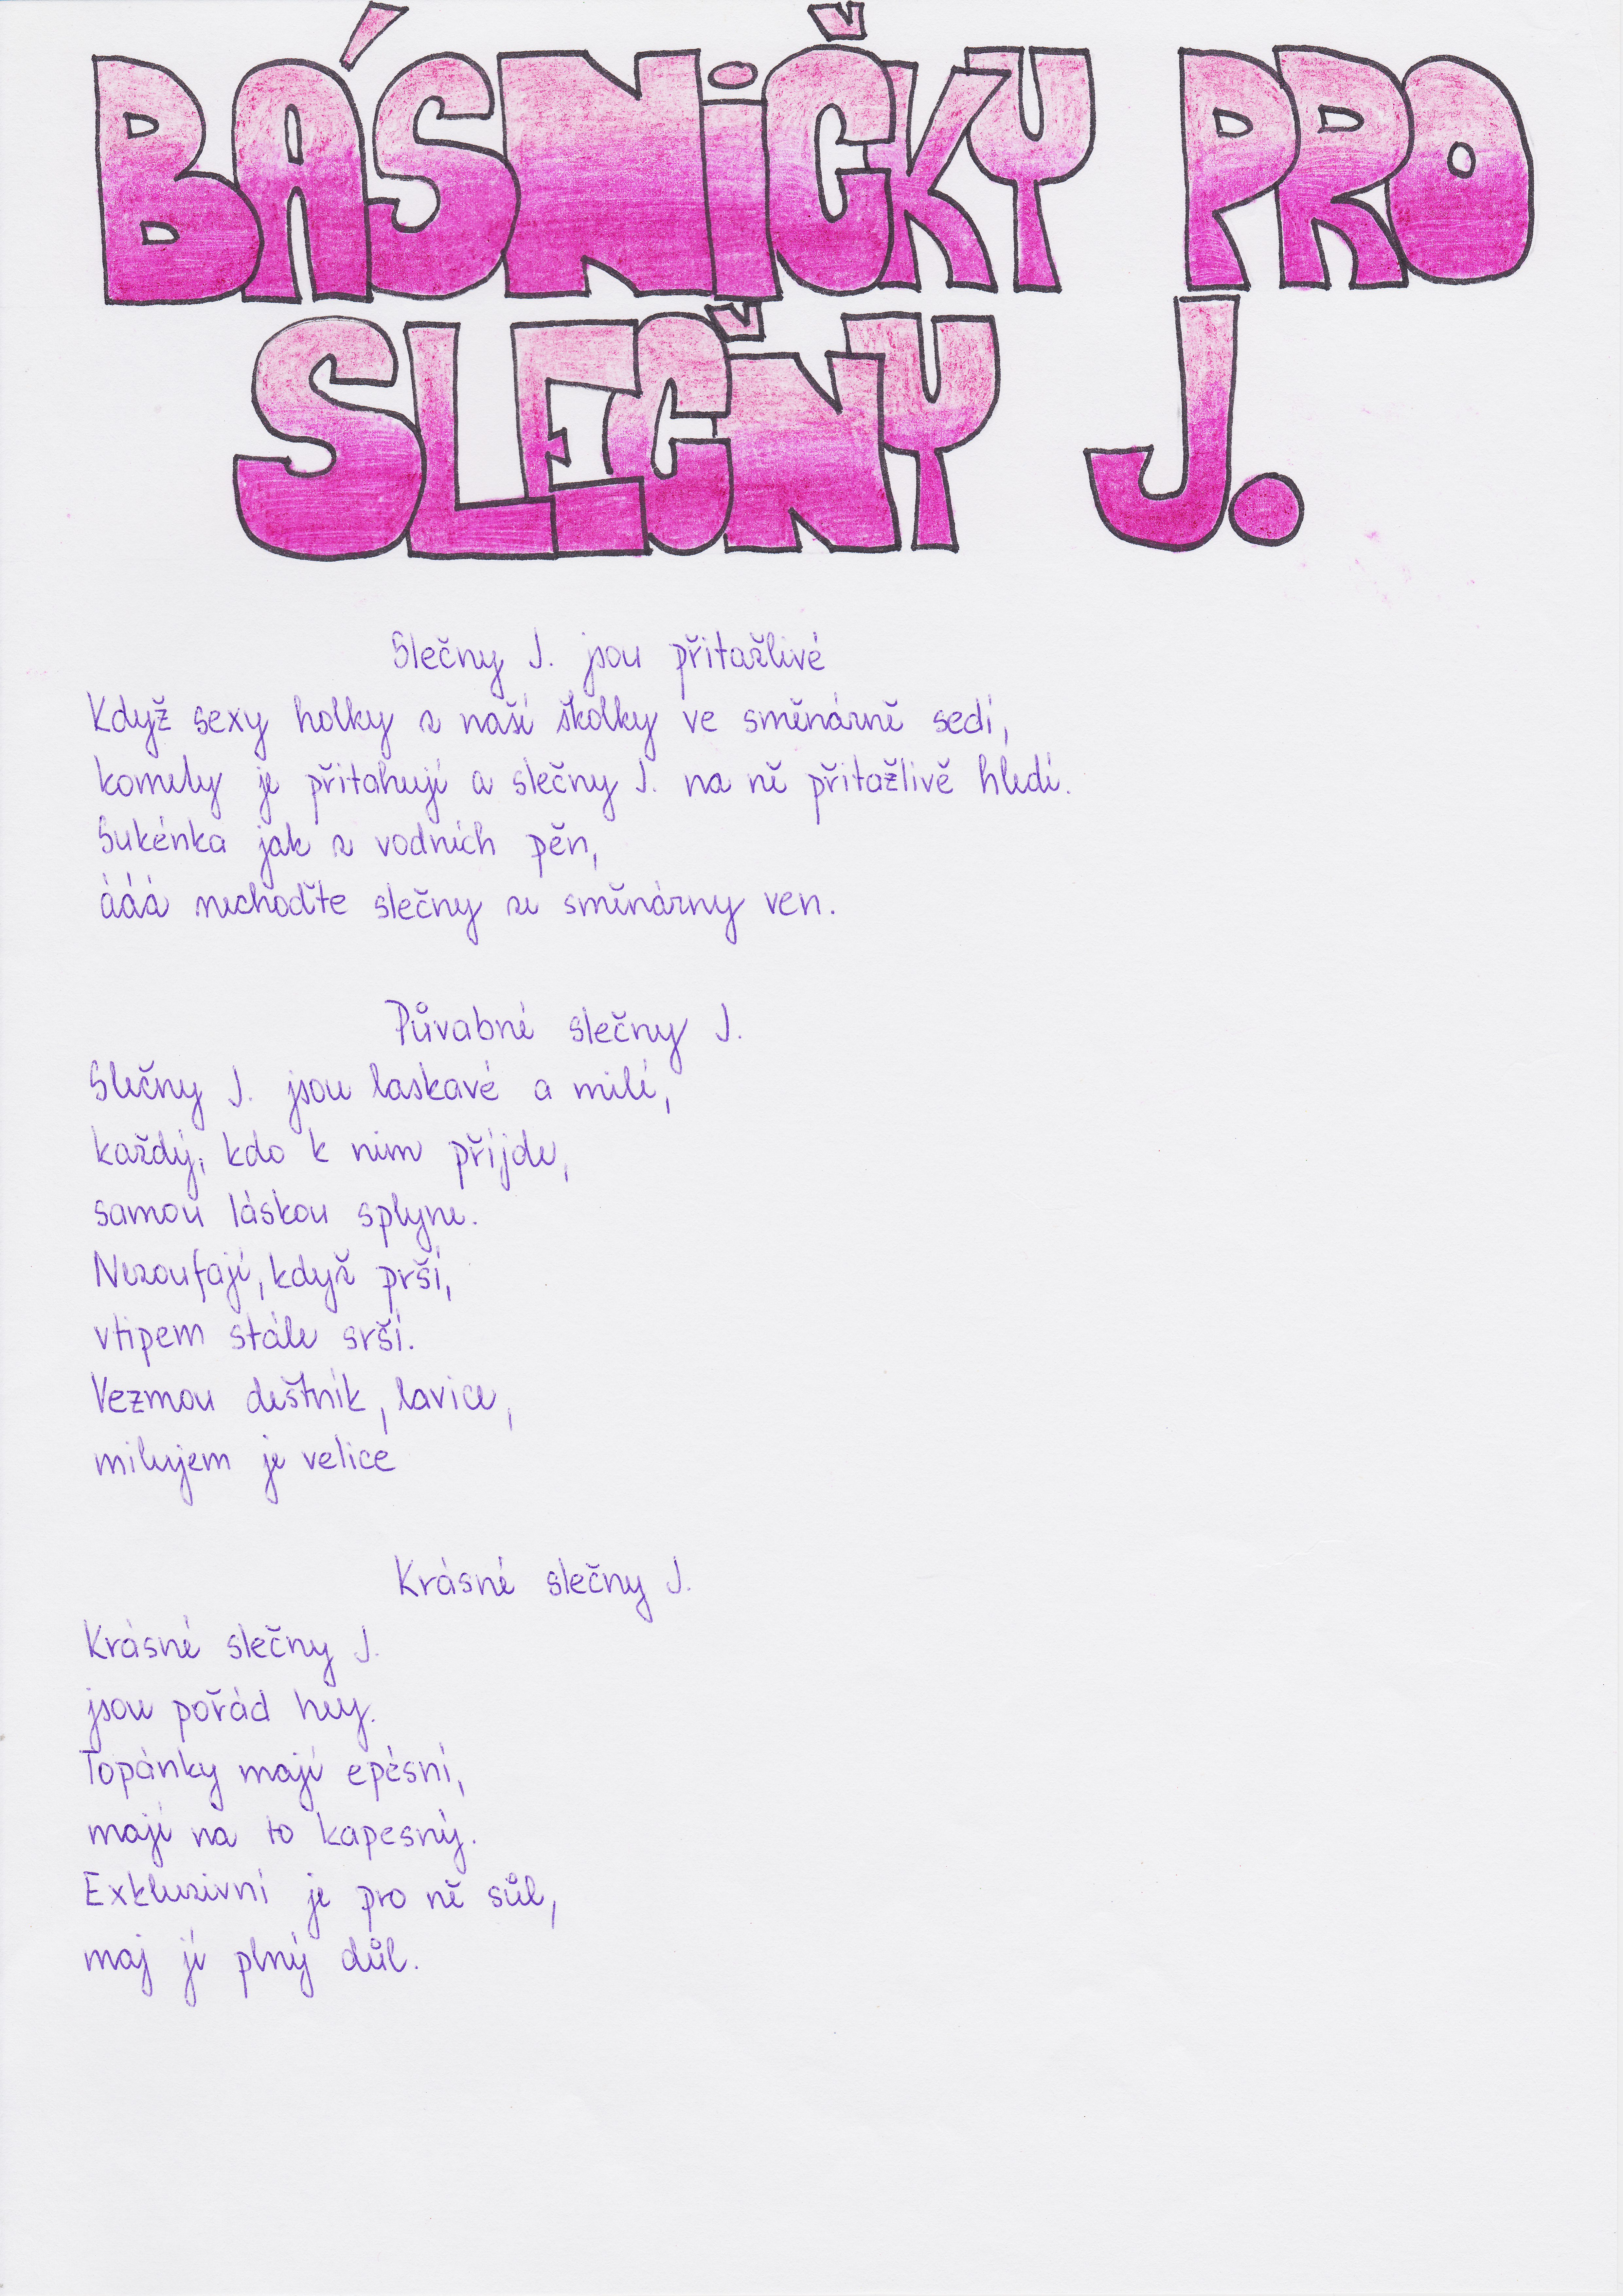 BÁSNiČKY PRO
SLEČNY J.
Slečny J. jsou přitažlivé
Když sexy holky z naší školky ve směnárně sedí,
komely je přitahují a slečny J. na ně přitažlivě hledí.
Sukénka jak z vodních pěn,
ááá nechoďte slečny ze směnárny ven.
Půvabné slečny J.
Slečny J. jsou laskavé a milé,
každý, kdo k nim příjde,
samou láskou splyne.
Nezoufají, když prší,
vtipem stále srší.
Vezmou deštník, lavice,
milujem je velice
Krásné slečny J.
Krásné slečny J.
jsou pořád hey.
Topánky mají epésní,
mají na to kapesný.
Exkluzivní je pro ně sůl,
maj jí plný důl.